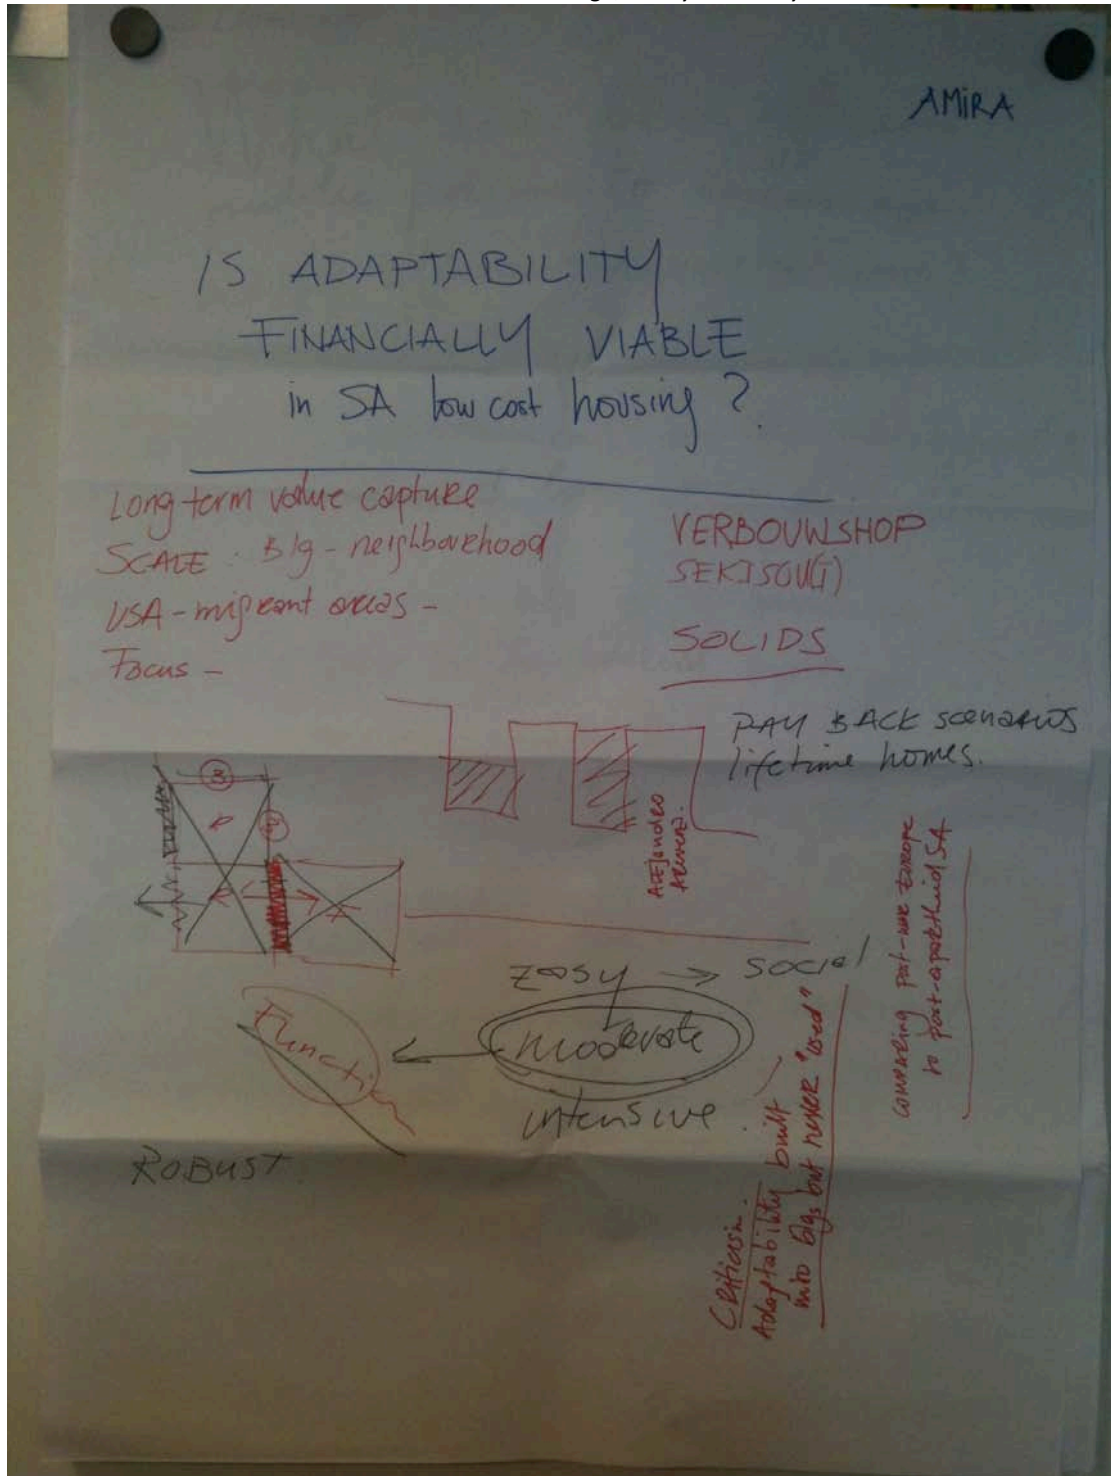 AMIRA
IS ADAPTABILITY
FINANCIALLY VIABLE
in SA low cost housing ?
Long term value capture
SCALE : Big - neighbourhood
USA - migrant areas -
Focus -
VERBOUWSHOP
SOLIDS
PAY BACK scenarios
lifetime homes.
3
Alejandro
easy → social
moderate
intensive
Function
ROBUST
Criticism:
Adaptability built
into blgs but never "used"
comparing post-war Europe
to post-apartheid SA